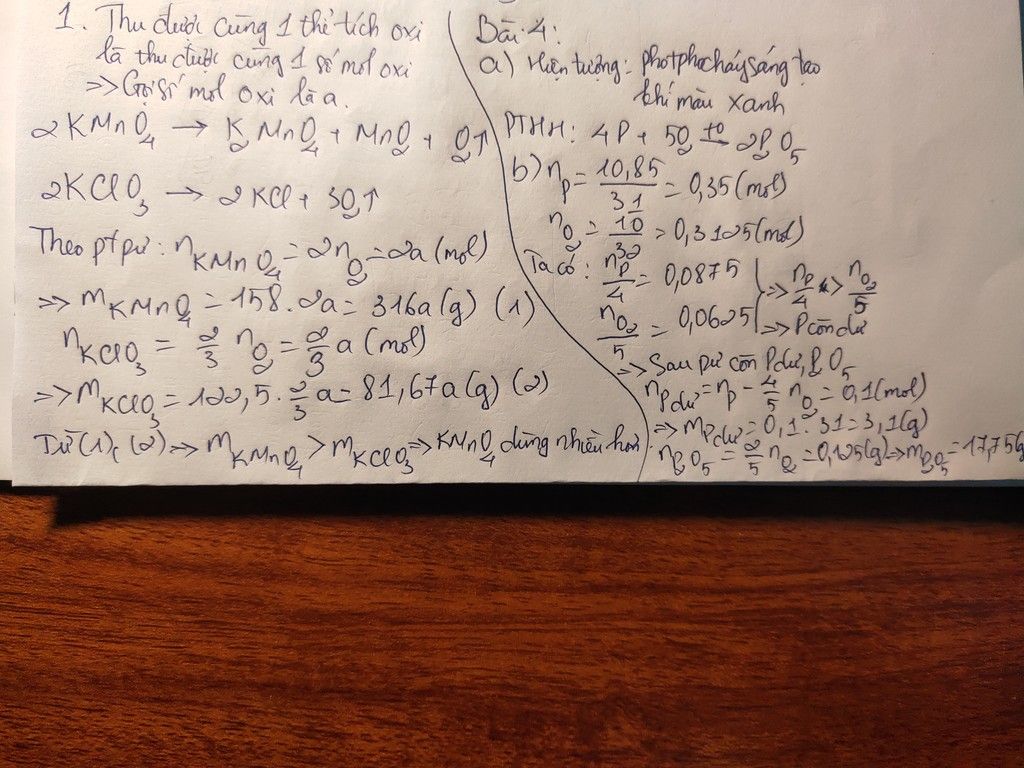 1. Thu được cùng 1 thể tích oxi
là thu được cùng 1 số mol oxi
=> Gọi số mol oxi là a.
2KMnO₄ → K₂MnO₄ + MnO₂ + O₂↑
2KClO₃ → 2KCl + 3O₂↑
Theo ptpư: n_KMnO₄ = 2n_O₂ = 2a (mol)
=> m_KMnO₄ = 158 . 2a = 316a (g) (1)
n_KClO₃ = 2/3 n_O₂ = 2/3 a (mol)
=> m_KClO₃ = 122,5 . 2/3 a = 81,67a (g) (2)
Từ (1), (2) => m_KMnO₄ > m_KClO₃ => KMnO₄ dùng nhiều hơn
Bài 4:
a) Hiện tượng: photpho cháy sáng tạo
khí màu xanh
PTHH: 4P + 5O₂ t°→ 2P₂O₅
b) n_P = 10,85/31 = 0,35 (mol)
n_O₂ = 10/32 = 0,3125 (mol)
Ta có: n_P/4 = 0,0875
n_O₂/5 = 0,0625
=> n_P/4 > n_O₂/5
=> P còn dư
=> Sau pư còn P dư, P₂O₅
n_P dư = n_P - 4/5 n_O₂ = 0,1 (mol)
=> m_P dư = 0,1 . 31 = 3,1 (g)
n_P₂O₅ = 2/5 n_O₂ = 0,125 (g) => m_P₂O₅ = 17,75g